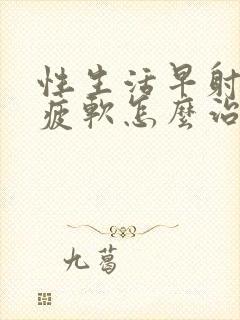 性生活早射
疲軟怎麼治
九葛